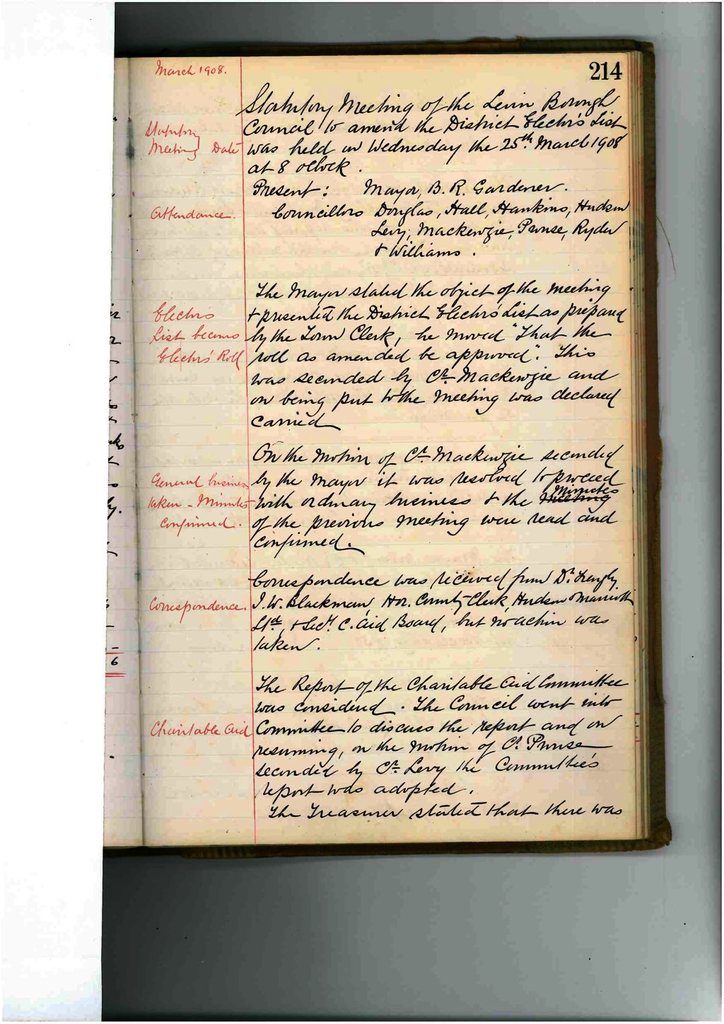 March 1908.
214
Statutory Meeting of the Levin Borough
Statutory
Council to amend the District Electors List
Meeting Date
was held on Wednesday the 25th March 1908
at 8 oclock.
Present: Mayor, B. R. Gardener.
Attendance.
Councillors Douglas, Hall, Hankins, Hudson
Levy, Mackenzie, Prouse, Ryder
& Williams.
The Mayor stated the object of the meeting
Electors
& presented the District Electors List as prepared
List becomes
by the Town Clerk, he moved "That the
Electors' Roll
roll as amended be approved". This
was seconded by Cr. Mackenzie and
on being put to the meeting was declared
carried
On the motion of Cr. Mackenzie seconded
General business
by the Mayor it was resolved to proceed
taken - Minutes
with ordinary business & the Meeting Minutes
confirmed.
of the previous meeting were read and
confirmed.
Correspondence was received from Dr.
Correspondence.
J. W. Blackman, Hor. County Clerk, Hudson
Ltd, & Secy. C. Aid Board, but no action was
taken.
6
The Report of the Charitable Aid Committee
was considered. The Council went into
Charitable Aid
Committee to discuss the report and on
resuming, on the motion of Cr. Prouse
seconded by Cr. Levy the Committee's
report was adopted.
The Treasurer stated that there was